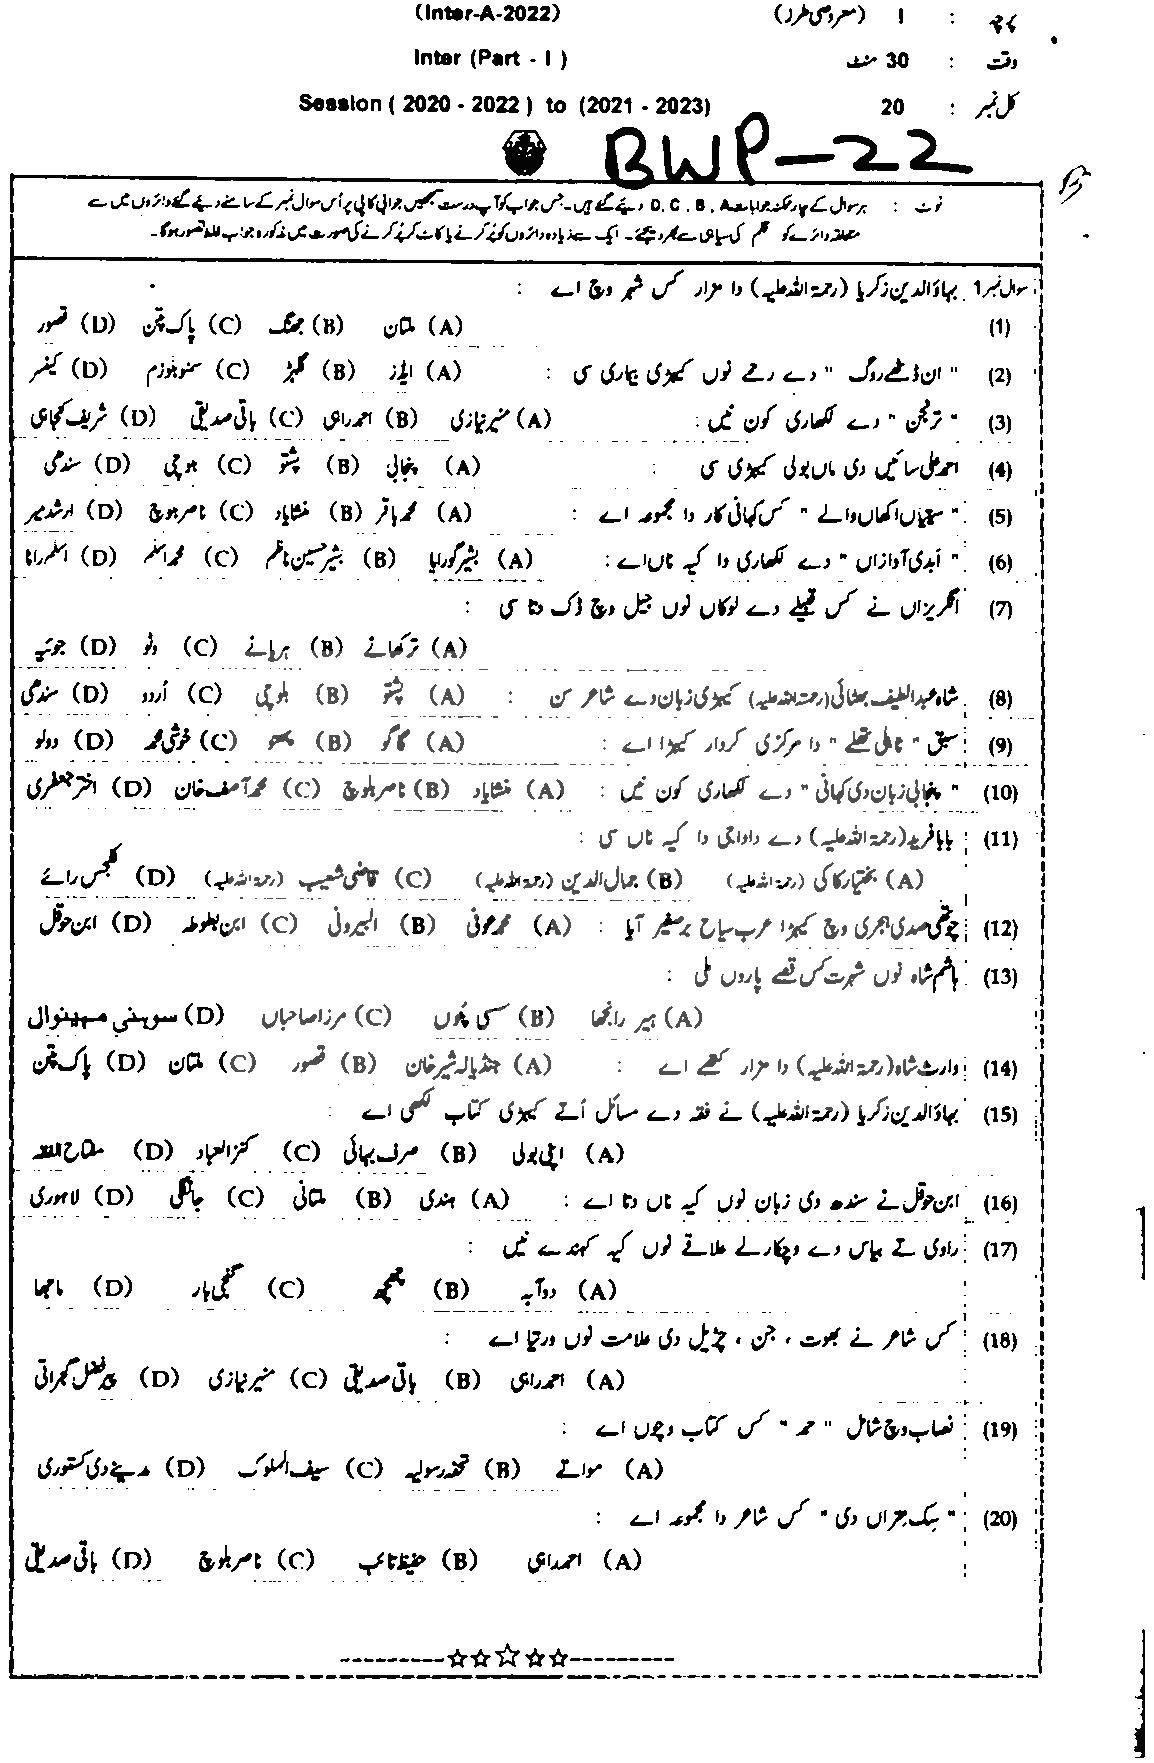 (Inter-A-2022) پرچہ : I (معروضی طرز)
Inter (Part - I ) وقت : 30 منٹ
Session ( 2020 - 2022 ) to (2021 - 2023) کل نمبر : 20
BWP-22
نوٹ : ہر سوال کے چار ممکنہ جوابات D, C, B, A دیئے گئے ہیں۔ جس جواب کو آپ درست سمجھیں جوابی کاپی پر اُس سوال نمبر کے سامنے دیئے گئے دائروں میں سے
متعلقہ دائرے کو قلم کی سیاہی سے بھر دیجئے۔ ایک سے زیادہ دائروں کو پُر کرنے یا کاٹ کر پُر کرنے کی صورت میں مذکورہ جواب غلط تصور ہو گا۔
سوال نمبر 1. بہاؤالدین زکریا (رحمۃ اللہ علیہ) دا مزار کس شہر وچ اے :
(1) (A) ملتان (B) جھنگ (C) پاک پتن (D) قصور
(2) " ان ڈٹھے روگ " دے رحمے نوں کیہڑی بیماری سی : (A) ایڈز (B) گلہڑ (C) سنو بلوزم (D) کینسر
(3) " ترنجن " دے لکھاری کون نیں : (A) منیر نیازی (B) احمد راہی (C) باقی صدیقی (D) شریف کنجاہی
(4) احمد علی سائیں دی ماں بولی کیہڑی سی : (A) پنجابی (B) پشتو (C) بلوچی (D) سندھی
(5) " ستیاں اکھاں والے " کس کہانی کار دا مجموعہ اے : (A) محمد باقر (B) منشا یاد (C) ناصر بلوچ (D) ارشد میر
(6) " اَبدی آوازاں " دے لکھاری دا کیہ ناں اے : (A) بشیر گورایا (B) بشیر حسین ناظم (C) محمد اسلم (D) اسلم رانا
(7) انگریزاں نے کس قبیلے دے لوکاں نوں جیل وچ ڈک دتا سی :
(A) ترکھانے (B) ہرلانے (C) وٹو (D) جوئیہ
(8) شاہ عبداللطیف بھٹائی (رحمۃ اللہ علیہ) کیہڑی زبان دے شاعر سن : (A) پشتو (B) بلوچی (C) اُردو (D) سندھی
(9) سبق " ٹالی تھلے " دا مرکزی کردار کیہڑا اے : (A) کاگو (B) (C) خوشی محمد (D) دولو
(10) " پنجابی زبان دی کہانی " دے لکھاری کون نیں : (A) منشا یاد (B) ناصر بلوچ (C) محمد آصف خان (D) اختر جعفری
(11) بابا فرید (رحمۃ اللہ علیہ) دے داداجی دا کیہ ناں سی :
(A) بختیار کاکی (رحمۃ اللہ علیہ) (B) جمال الدین (رحمۃ اللہ علیہ) (C) قاضی شعیب (رحمۃ اللہ علیہ) (D) گنجس رائے
(12) چوتھی صدی ہجری وچ کیہڑا عرب سیاح برصغیر آیا : (A) محمد عوفی (B) البیرونی (C) ابن بطوطہ (D) ابن حوقل
(13) ہاشم شاہ نوں شہرت کس قصے پاروں ملی :
(A) ہیر رانجھا (B) سسی پنوں (C) مرزا صاحباں (D) سوہنی مہینوال
(14) وارث شاہ (رحمۃ اللہ علیہ) دا مزار کتھے اے : (A) جنڈیالہ شیر خان (B) قصور (C) ملتان (D) پاک پتن
(15) بہاؤالدین زکریا (رحمۃ اللہ علیہ) نے فقہ دے مسائل اُتے کیہڑی کتاب لکھی اے :
(A) اپنی بولی (B) صرف بہائی (C) کنز العباد (D) مفتاح الفقہ
(16) ابن حوقل نے سندھ دی زبان نوں کیہ ناں دتا اے : (A) ہندی (B) ملتانی (C) جانگلی (D) لاہوری
(17) راوی تے بیاس دے وچکارلے علاقے نوں کیہ کہندے نیں :
(A) دوآبہ (B) چھچھ (C) گنجی بار (D) ماجھا
(18) کس شاعر نے بھوت ، جن ، چڑیل دی علامت نوں ورتیا اے :
(A) احمد راہی (B) باقی صدیقی (C) منیر نیازی (D) پیر فضل گجراتی
(19) نصاب وچ شامل " حمد " کس کتاب وچوں اے :
(A) مواتے (B) تحفہ رسولیہ (C) سیف الملوک (D) مدینے دی کستوری
(20) " سِک متراں دی " کس شاعر دا مجموعہ اے :
(A) احمد راہی (B) حفیظ تائب (C) ناصر بلوچ (D) باقی صدیقی